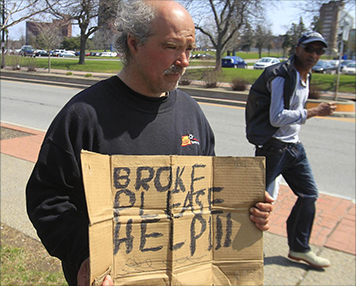 BROKE
PLEASE
HELP!!!